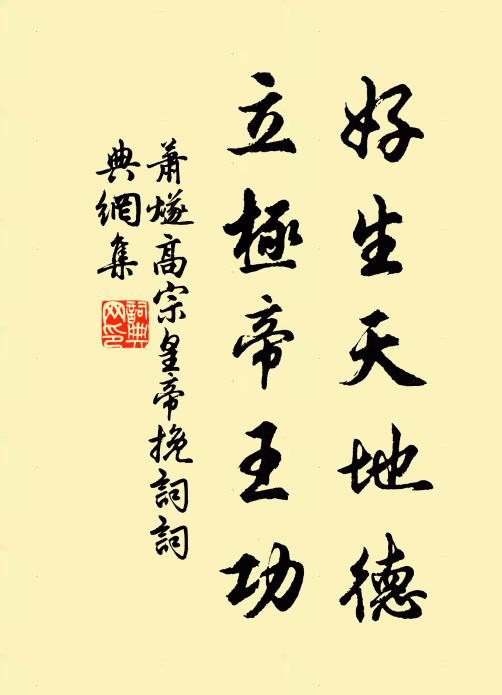 好生天地德
立極帝王功
蕭燧高宗皇帝挽詞詞
典網集
詞典網印